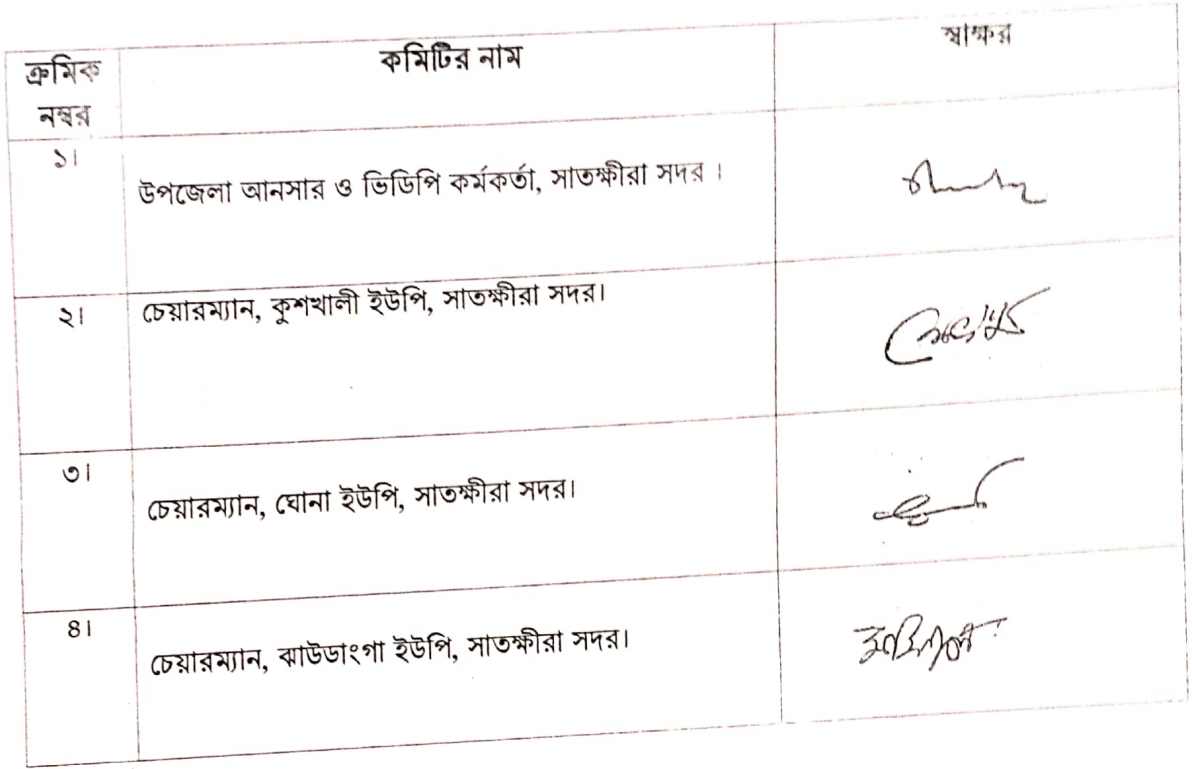 ক্রমিক নম্বর কমিটির নাম স্বাক্ষর
১। উপজেলা আনসার ও ভিডিপি কর্মকর্তা, সাতক্ষীরা সদর ।
২। চেয়ারম্যান, কুশখালী ইউপি, সাতক্ষীরা সদর।
৩। চেয়ারম্যান, ঘোনা ইউপি, সাতক্ষীরা সদর।
৪। চেয়ারম্যান, ঝাউডাংগা ইউপি, সাতক্ষীরা সদর।